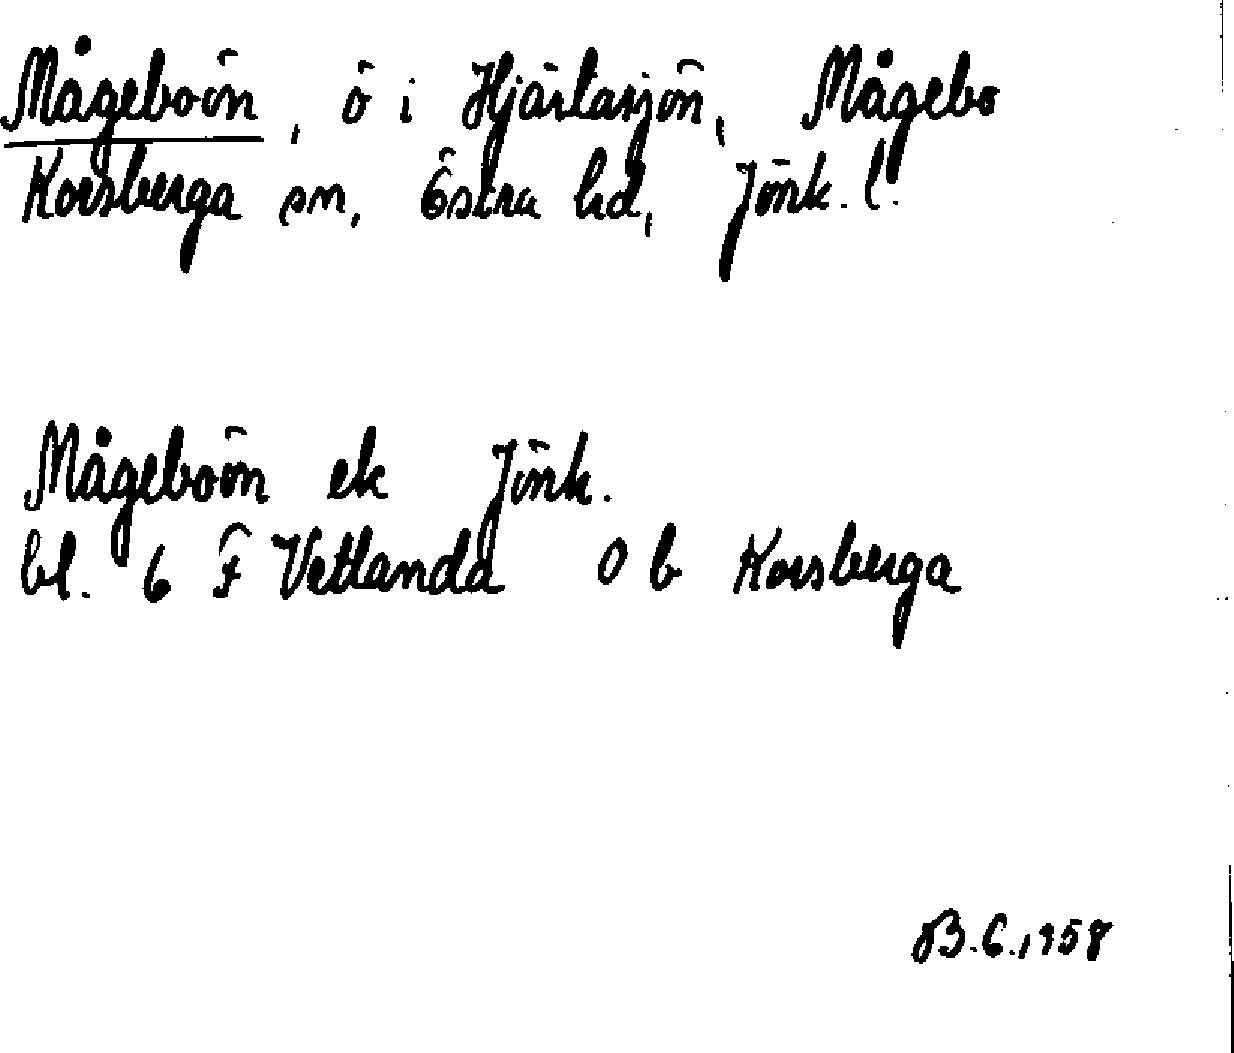 Mågeboön, ö i Hjärtasjön, Mågebo
Korsberga sn, Östra hd, Jönk. l.
Mågeboön ek Jönk.
bl. 6 F Vetlanda 0 b Korsberga
B.C., 1958